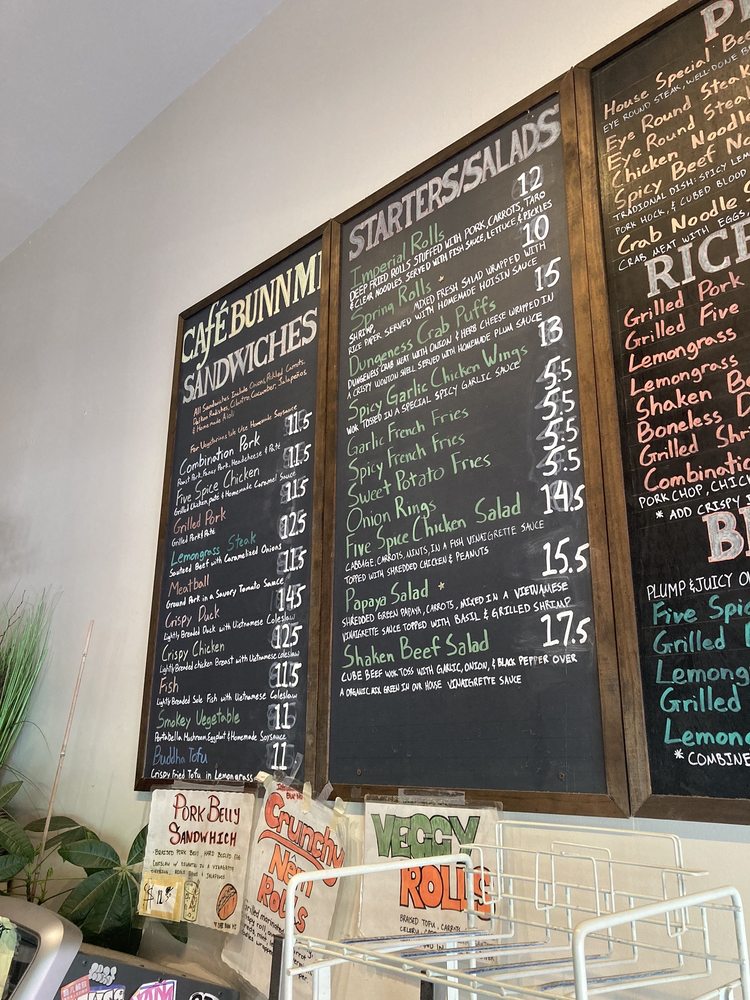 Café BUNN MI
SANDWICHES
All Sandwiches Include Onions, Pickled Carrots,
Daikon Radishes, Cilantro, Cucumber, Jalapeños
& Homemade Aioli
For Vegetarians We Use Homemade Soysauce
Combination Pork 11.5
Roast Pork, Fancy Pork, Headcheese & Paté
Five Spice Chicken 11.5
Grilled Chicken, paté & Homemade Caramel Sauce
Grilled Pork 11.5
Grilled Pork & Paté
Lemongrass Steak 12.5
Sauteed Beef with Caramelized Onions
Meatball 11.5
Ground Pork in a Savory Tomato Sauce
Crispy Duck 14.5
Lightly Breaded Duck with Vietnamese Coleslaw
Crispy Chicken 12.5
Lightly Breaded chicken Breast with Vietnamese Coleslaw
Fish 11.5
Lightly Breaded Sole Fish with Vietnamese Coleslaw
Smokey Vegetable 11
Portabella Mushroom, Eggplant & Homemade Soysauce
Buddha Tofu 11
Crispy Fried Tofu in Lemongrass
STARTERS/SALADS
Imperial Rolls 12
DEEP FRIED ROLLS STUFFED WITH PORK, CARROTS, TARO
& CLEAR NOODLES SERVED WITH FISH SAUCE, LETTUCE, & PICKLES
Spring Rolls * 10
SHRIMP, MIXED FRESH SALAD WRAPPED WITH
RICE PAPER SERVED WITH HOMEMADE HOISIN SAUCE
Dungeness Crab Puffs 15
DUNGENESS CRAB MEAT WITH ONION & HERB CHEESE WRAPPED IN
A CRISPY WONTON SHELL SERVED WITH HOMEMADE PLUM SAUCE
Spicy Garlic Chicken Wings 13
WOK TOSSED IN A SPECIAL SPICY GARLIC SAUCE
Garlic French Fries 5.5
Spicy French Fries 5.5
Sweet Potato Fries 5.5
Onion Rings 5.5
Five Spice Chicken Salad 14.5
CABBAGE, CARROTS, MINTS, IN A FISH VINAIGRETTE SAUCE
TOPPED WITH SHREDDED CHICKEN & PEANUTS
Papaya Salad * 15.5
SHREDDED GREEN PAPAYA, CARROTS, MIXED IN A VIETNAMESE
VINAIGRETTE SAUCE TOPPED WITH BASIL & GRILLED SHRIMP
Shaken Beef Salad 17.5
CUBE BEEF WOK TOSS WITH GARLIC, ONION, & BLACK PEPPER OVER
A ORGANIC MIX GREEN IN OUR HOUSE VINAIGRETTE SAUCE
House Special Bee
EYE ROUND STEAK, WELL-DONE B
Eye Round Steak
Eye Round Steak
Chicken Noodle
Spicy Beef No
TRADIONAL DISH: SPICY LEMO
PORK HOCK, & CUBED BLOOD
Crab Noodle
CRAB MEAT WITH EGGS
RICE
Grilled Pork
Grilled Five
Lemongrass
Lemongrass
Shaken Bee
Boneless D
Grilled Shri
Combinatio
PORK CHOP, CHICK
* ADD CRISPY
PLUMP & JUICY
Five Spic
Grilled
Lemong
Grilled
Lemon
* COMBINE
PORK BELLY
SANDWHICH
BRAISED PORK BELLY, HARD BOILED EGG
Crunchy
Nem
Rolls
VEGGY
ROLLS
BRAISED TOFU, CARROTS